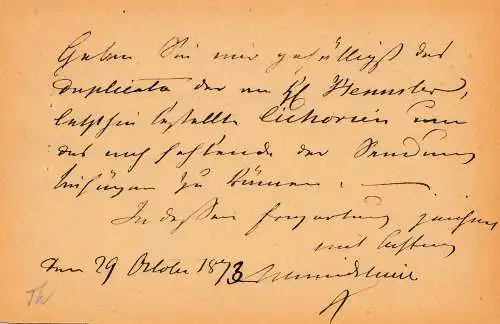 Geben Sie mir gefälligst das
Duplicata der an
letzthin bestellte Cichorien um
das noch fehlende der Sendung
beifügen zu können. —
In dessen Erwartung zeichne
mit Achtung
den 29 October 1873
Th